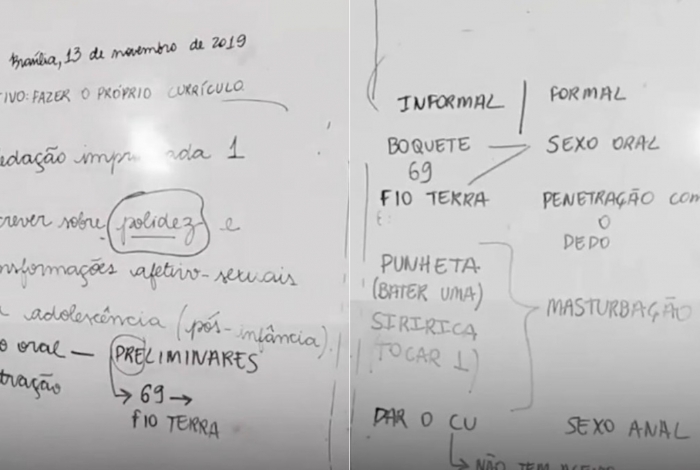 Brasília, 13 de novembro de 2019
TIVO: FAZER O PRÓPRIO CURRÍCULO
edação 1
crever sobre polidez e
nsformações afetivo-sexuais
adolescência (pós-infância).
o oral — PRELIMINARES
tração
69 →
FIO TERRA
INFORMAL | FORMAL
BOQUETE — SEXO ORAL
69
FIO TERRA PENETRAÇÃO COM
O
DEDO
PUNHETA
(BATER UMA)
MASTURBAÇÃO
SIRIRICA
(TOCAR 1)
DAR O CU SEXO ANAL
NÃO TEM